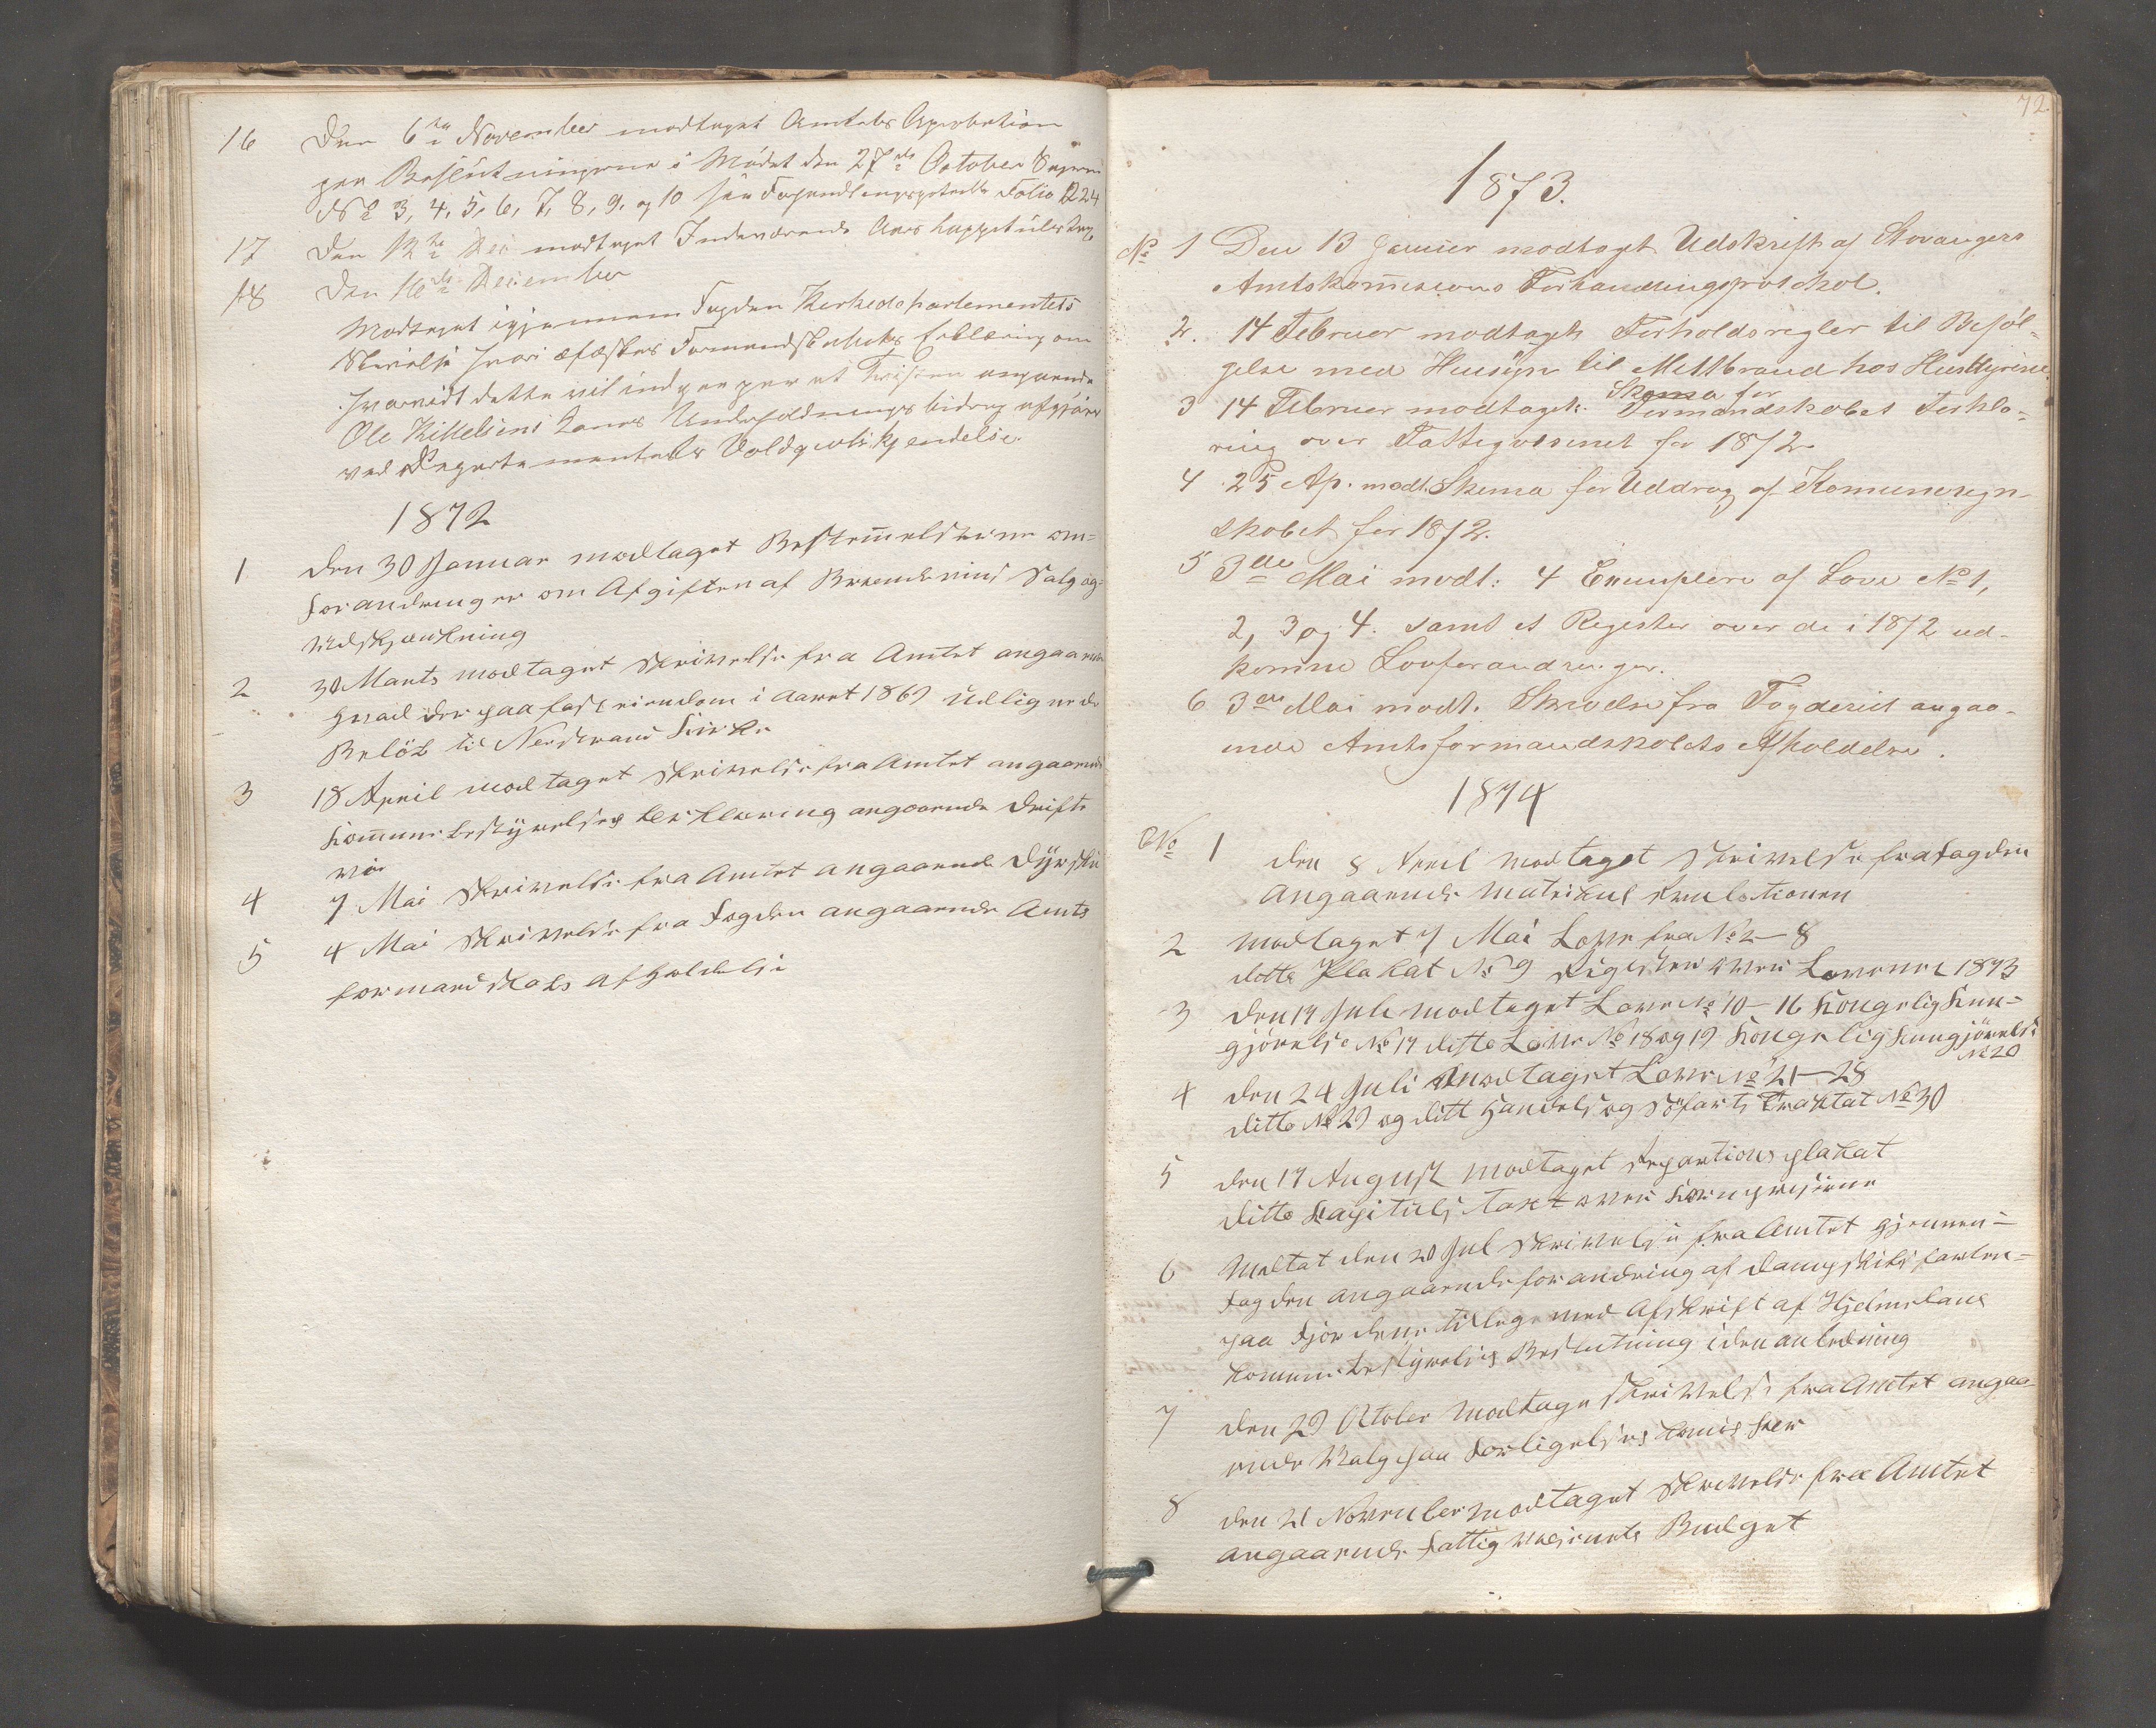 16 Den 6te November modtaget Amtets Aprobation
paa Beslutningerne i Mødet den 27de October
No 3, 4, 5, 6, 7, 8, 9, og 10 See Forhandlingsprotocoll Folio 224
17 Den 12te Dec modtaget Indeværende Aars Kappitulstaxt
18 Den 16de December
Modtaget igjennem Fogden Kirkedepartementets
Skrivelse hvori æskes Formandskabets Erklæring om
hvorvidt dette vil indgaa paa at Tvisten angaaende
Ole Kittelsens Underholdningsbidrag afgjøres
ved Departementets Voldgivtskjendelse.
1872
1 den 30 Januar modtaget Bestemelserne om
forandringer om Afgiften af Brændeviins Salg og
Udskjænkning
2 30 Marts modtaget Skrivelse fra Amtet angaaende
hvad der paa fast eiendom i Aaret 1869 Udlignede
Beløb til Nerstrand Kirke
3 18 April modtaget Skrivelse fra Amtet angaaende
Komunebestyrelses Erklæring angaaende Drifte
vei
4 7 Mai Skrivelse fra Amtet angaaende Dyrsku
5 4 Mai Skrivelse fra Fogden angaaende Amts
formandskabs Afholdelse
72
1873.
No 1 Den 13 Januer modtaget Udskrift af Stavangers
Amtskomisions Forhandlingsprotokol.
2. 14 Februer modtaget Forholdsregler til Beføl-
gelse med Hensyn til Miltbrand hos Husdyrene.
Skema for
3 14 Februer modtaget Formandskabets Forkla-
ring over Fattigvæsenet for 1872
4 25 Ap. modt. Skema for Uddrag af Komuneregn-
skabet for 1872.
5 3die Mai modt: 4 Exemplere af Love No 1,
2, 3 og 4. samt et Register over de i 1872 ud-
komne Lovforandringer.
6 3die Mai modt. Skrivelse fra Fogderiet angaa-
ende Amtsformandskabets Afholdelse.
1874
No 1 den 8 April modtaget Skrivelse fra Fogden
Angaaende Matrikul
2 modtaget 7 Mai Love fra No 2–8
ditto Plakat No 9 Register over Lovene 1873
3 den 17 Juli modtaget Love No 10–16 Kongelig Kun-
gjørelse No 17 ditto Love No 18 og 19 Kongelig Kungjørelse
No 20
4 den 24 Juli modtaget Love No 21–28
ditto No 29 og ditt Handels og Søfarts Traktat No 30
5 den 17 August modtaget Repartions plakat
ditto Kapituls taxt over Kornpriserne
6 Motat den 20 Jul Skrivelse fra Amtet gjennem
Fogden angaaende forandring af Dampskibs farten
paa Fjordene tillige med Afskrift af Hjelmelans
Komunebestyrelses Beslutning i den anledning
7 den 29 Otober modtage Skrivelse fra Amtet angaa-
ende Valg paa Forligelses Komissær
8 den 21 November modtaget Skrivelse fra Amtet
angaaende Fattigvæsenets Budget